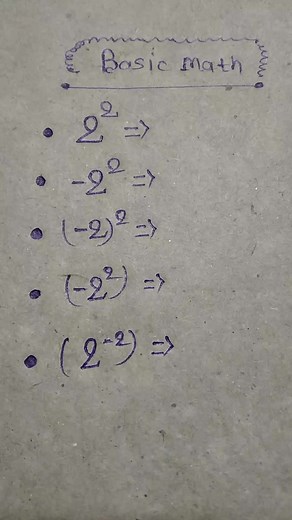 Basic Math
• 2² =>
• -2² =>
• (-2)² =>
• (-2²) =>
• (2⁻²) =>